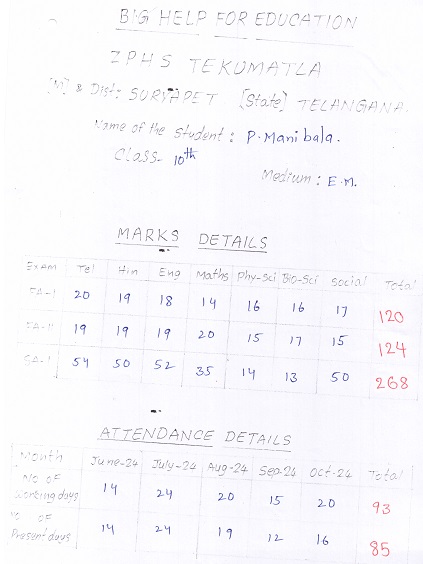 BIG HELP FOR EDUCATION
ZPHS TEKUMATLA
[M] & Dist: SURYAPET [State] TELANGANA.
Name of the Student : P. Manibala.
Class- 10th
Medium : E.M.
MARKS DETAILS
EXAM Tel Hin Eng Maths Phy-Sci Bio-Sci Social Total
FA-I 20 19 18 14 16 16 17 120
FA-II 19 19 19 20 15 17 15 124
SA-I 54 50 52 35 14 13 50 268
ATTENDANCE DETAILS
Month June-24 July-24 Aug-24 Sep-24 Oct-24 Total
No of
Working days 14 24 20 15 20 93
No of
Present days 14 24 19 12 16 85